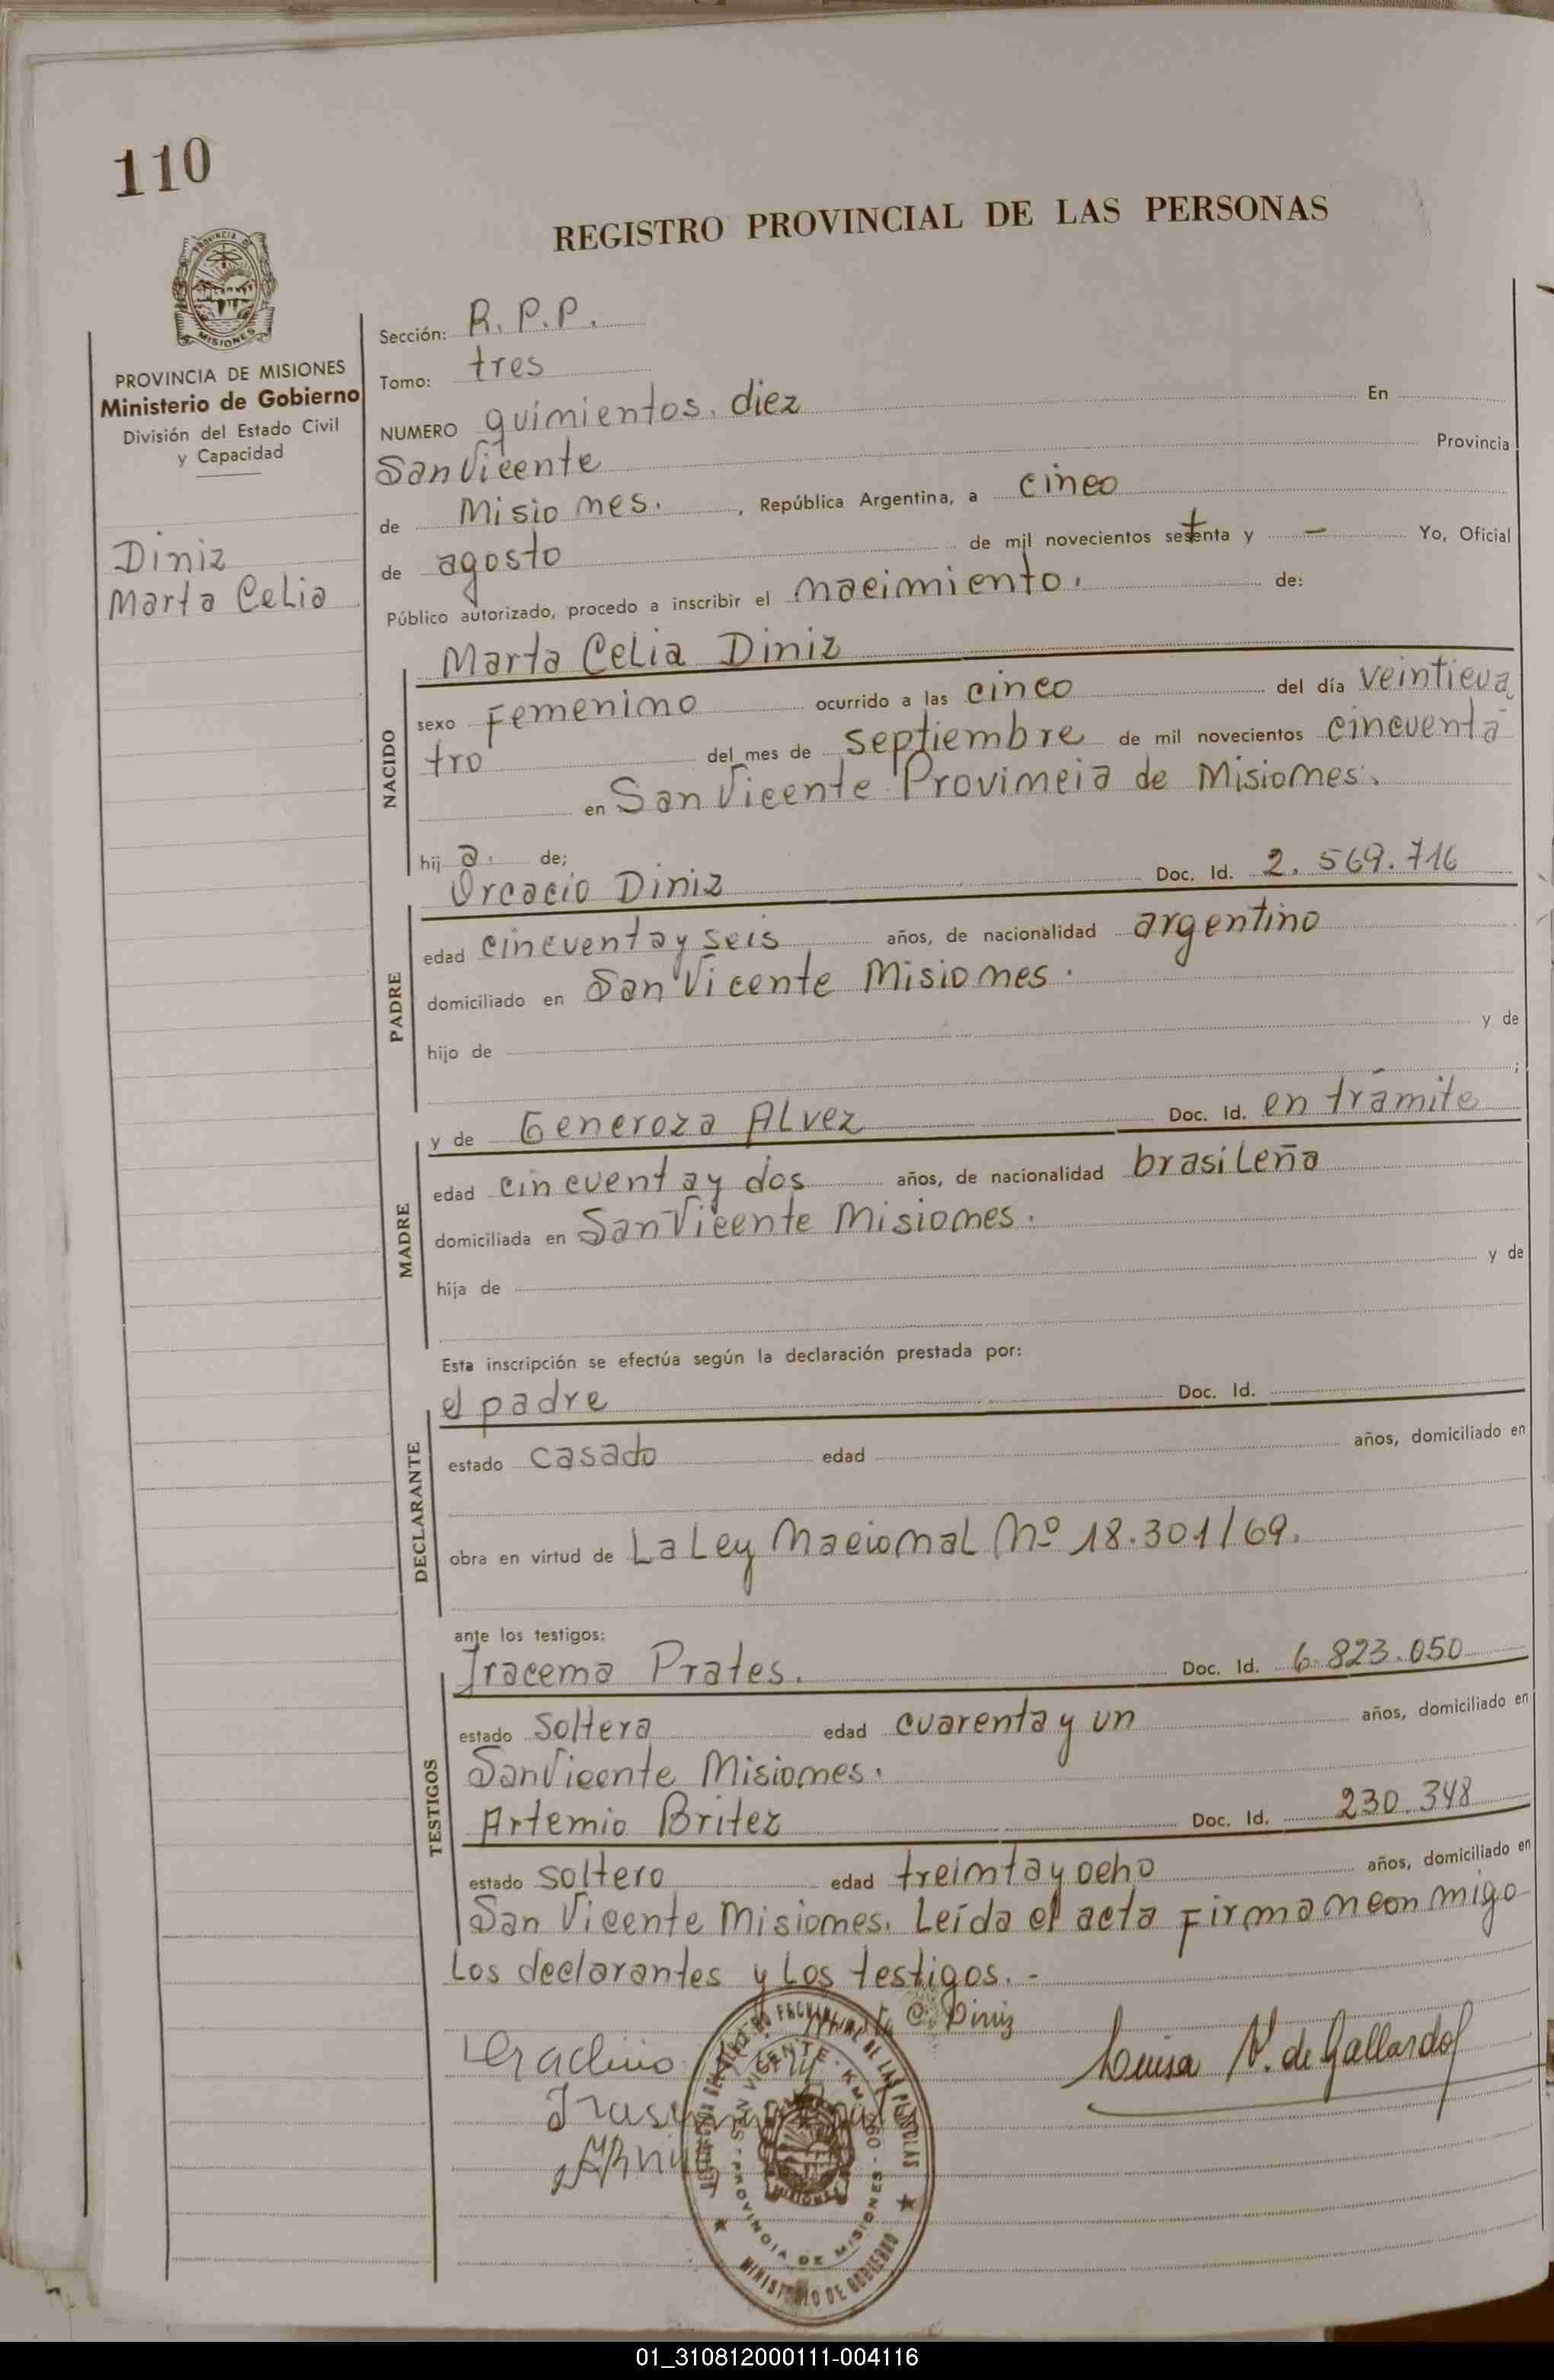 110
REGISTRO PROVINCIAL DE LAS PERSONAS
PROVINCIA DE
MISIONES
PROVINCIA DE MISIONES
Ministerio de Gobierno
División del Estado Civil
y Capacidad
Diniz
Marta Celia
Sección: R. P. P.
Tomo: tres
NUMERO quimientos. diez En
San Vicente Provincia
de Misiones. , República Argentina, a cinco
de agosto de mil novecientos setenta y — Yo, Oficial
Público autorizado, procedo a inscribir el nacimiento. de:
Marta Celia Diniz
NACIDO
sexo Femenino ocurrido a las cinco del día veinticua
tro del mes de septiembre de mil novecientos cincuenta
en San Vicente Provincia de Misiones.
hij a. de;
Orcacio Diniz Doc. Id. 2. 569. 716
PADRE
edad cincuenta y seis años, de nacionalidad argentino
domiciliado en San Vicente Misiones.
hijo de y de
;
y de Generoza Alvez Doc. Id. en trámite
MADRE
edad cincuenta y dos años, de nacionalidad brasileña
domiciliada en San Vicente Misiones.
hija de y de
Esta inscripción se efectúa según la declaración prestada por:
el padre Doc. Id.
DECLARANTE
estado casado edad años, domiciliado en
obra en virtud de La Ley Nacional Nº 18.301/69.
ante los testigos:
Iracema Prates. Doc. Id. 6. 823. 050
TESTIGOS
estado soltera edad cuarenta y un años, domiciliado en
San Vicente Misiones.
Artemio Britez Doc. Id. 230. 348
estado soltero edad treinta y ocho años, domiciliado en
San Vicente Misiones. Leída el acta Firman conmigo
Los declarantes y Los testigos. -
C. Diniz
Luisa V. de Gallardo
SAN VICENTE - KM
PROVINCIA DE MISIONES
MINISTERIO DE GOBIERNO
01_310812000111-004116